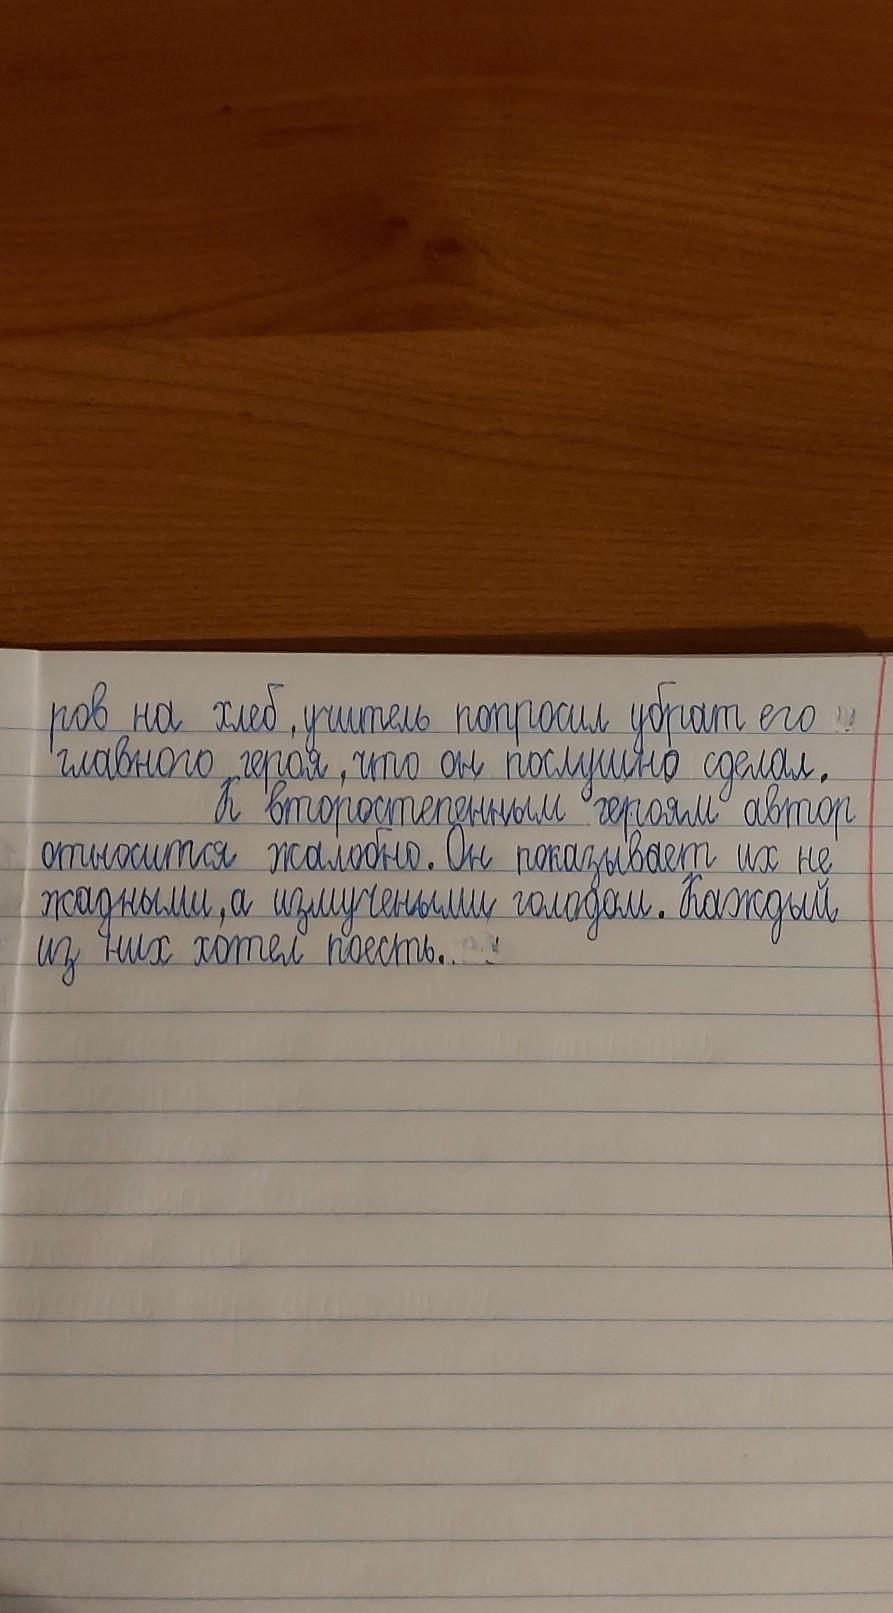 ров на хлеб, учитель попросил убрат его
главного героя, что он послушно сделал.
К второстепенным героям автор
относится жалобно. Он показывает их не
жадными, а измучеными голодом. Каждый
из них хотел поесть..